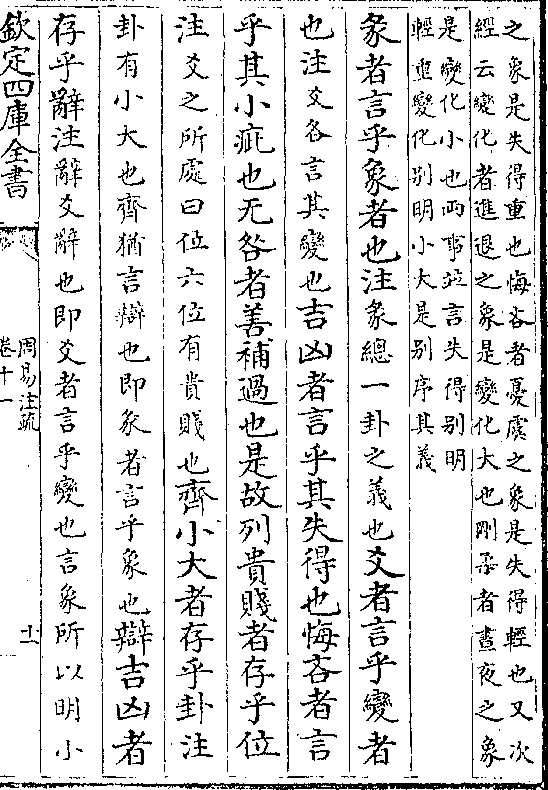 之象是失得重也悔吝者憂虞之象是失得輕也又次
經云變化者進退之象是變化大也剛柔者晝夜之象
是變化小也兩事並言失得別明
輕重變化別明小大是別序其義
彖者言乎象者也注彖總一卦之義也爻者言乎變者
也注爻各言其變也吉凶者言乎其失得也悔吝者言
乎其小疵也无咎者善補過也是故列貴賤者存乎位
注爻之所處曰位六位有貴賤也齊小大者存乎卦注
卦有小大也齊猶言辯也即彖者言乎象也辯吉凶者
存乎辭注辭爻辭也即爻者言乎變也言象所以明小
欽定四庫全書
周易注疏
卷十一
十一